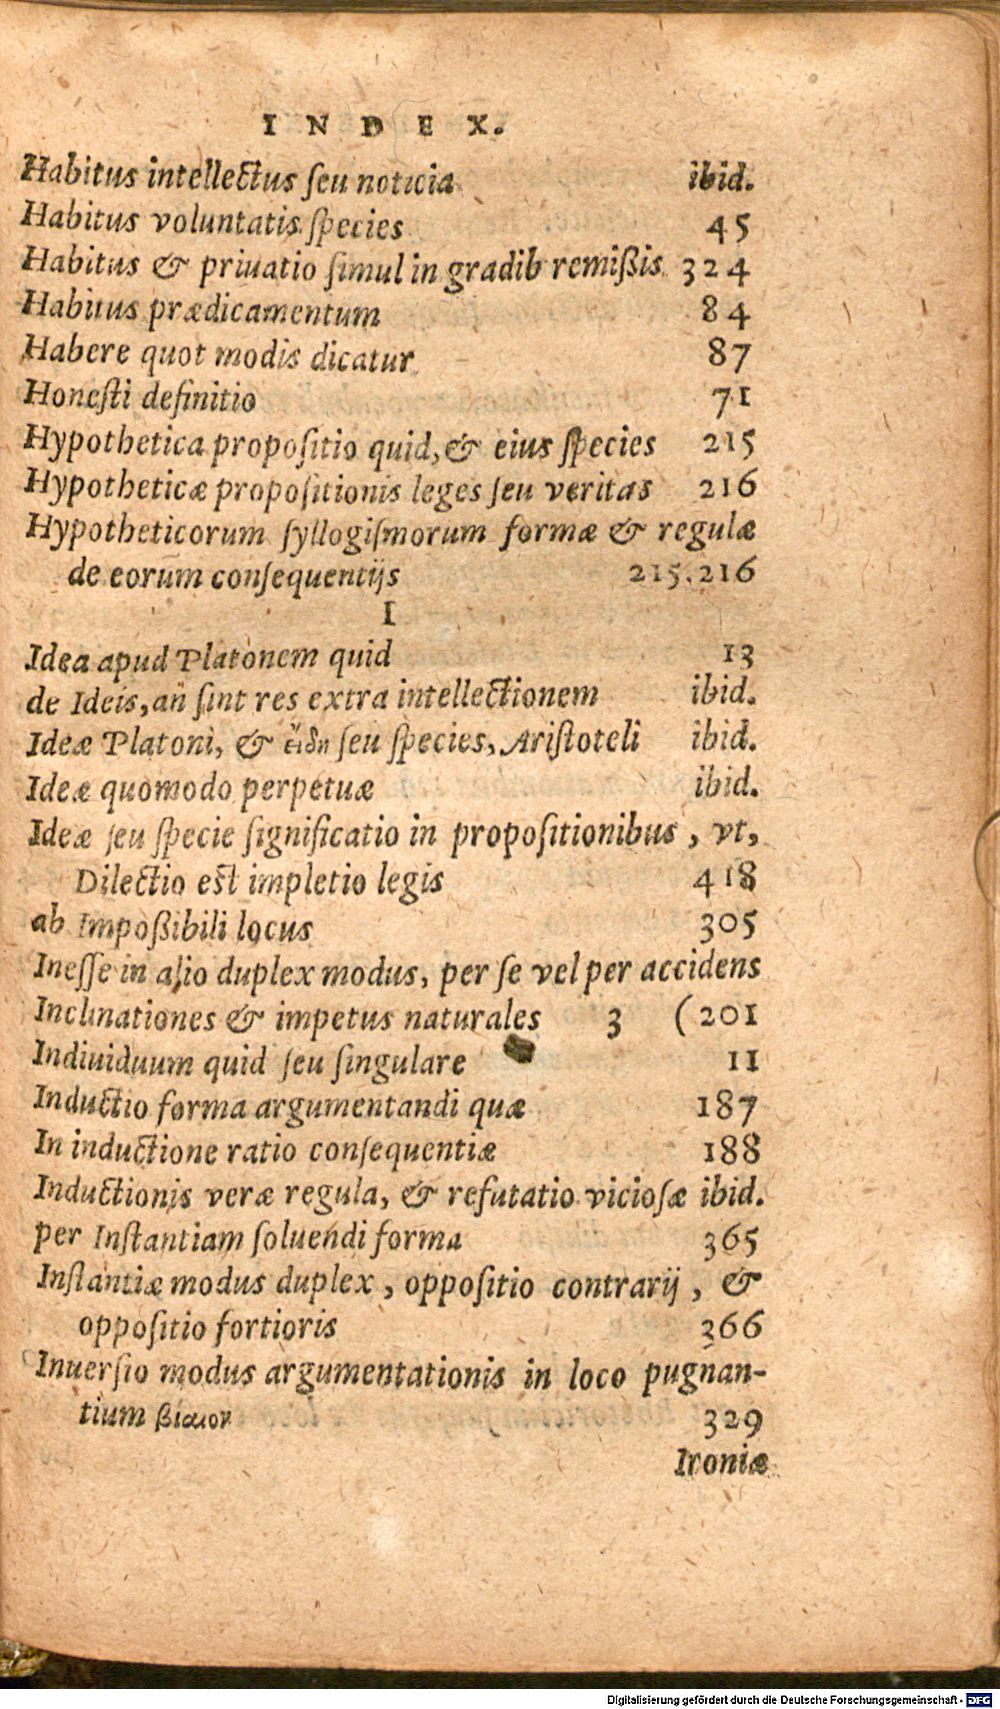 INDEX.
Habitus intellectus ſeu noticia ibid.
Habitus voluntatis ſpecies 45
Habitus & priuatio ſimul in gradib remißis 324
Habitus prædicamentum 84
Habere quot modis dicatur 87
Honeſti definitio 71
Hypothetica propoſitio quid, & eius ſpecies 215
Hypotheticæ propoſitionis leges ſeu veritas 216
Hypotheticorum ſyllogiſmorum formæ & regulæ
de eorum conſequentijs 215.216
I
Idea apud Platonem quid 13
de Ideis, an̄ ſint res extra intellectionem ibid.
Ideæ Platoni, & εἴδη ſeu ſpecies, Ariſtoteli ibid.
Ideæ quomodo perpetuæ ibid.
Ideæ ſeu ſpecie ſignificatio in propoſitionibus, vt,
Dilectio eſt impletio legis 418
ab Impoßibili locus 305
Ineſſe in alio duplex modus, per ſe vel per accidens
Inclinationes & impetus naturales 3 (201
Indiuiduum quid ſeu ſingulare 11
Inductio forma argumentandi quæ 187
In inductione ratio conſequentiæ 188
Inductionis veræ regula, & refutatio vicioſæ ibid.
per Inſtantiam ſoluendi forma 365
Inſtantiæ modus duplex, oppoſitio contrarij, &
oppoſitio fortioris 366
Inuerſio modus argumentationis in loco pugnan-
tium βίαιον 329
Ironiæ
Digitalisierung gefördert durch die Deutsche Forschungsgemeinschaft - DFG